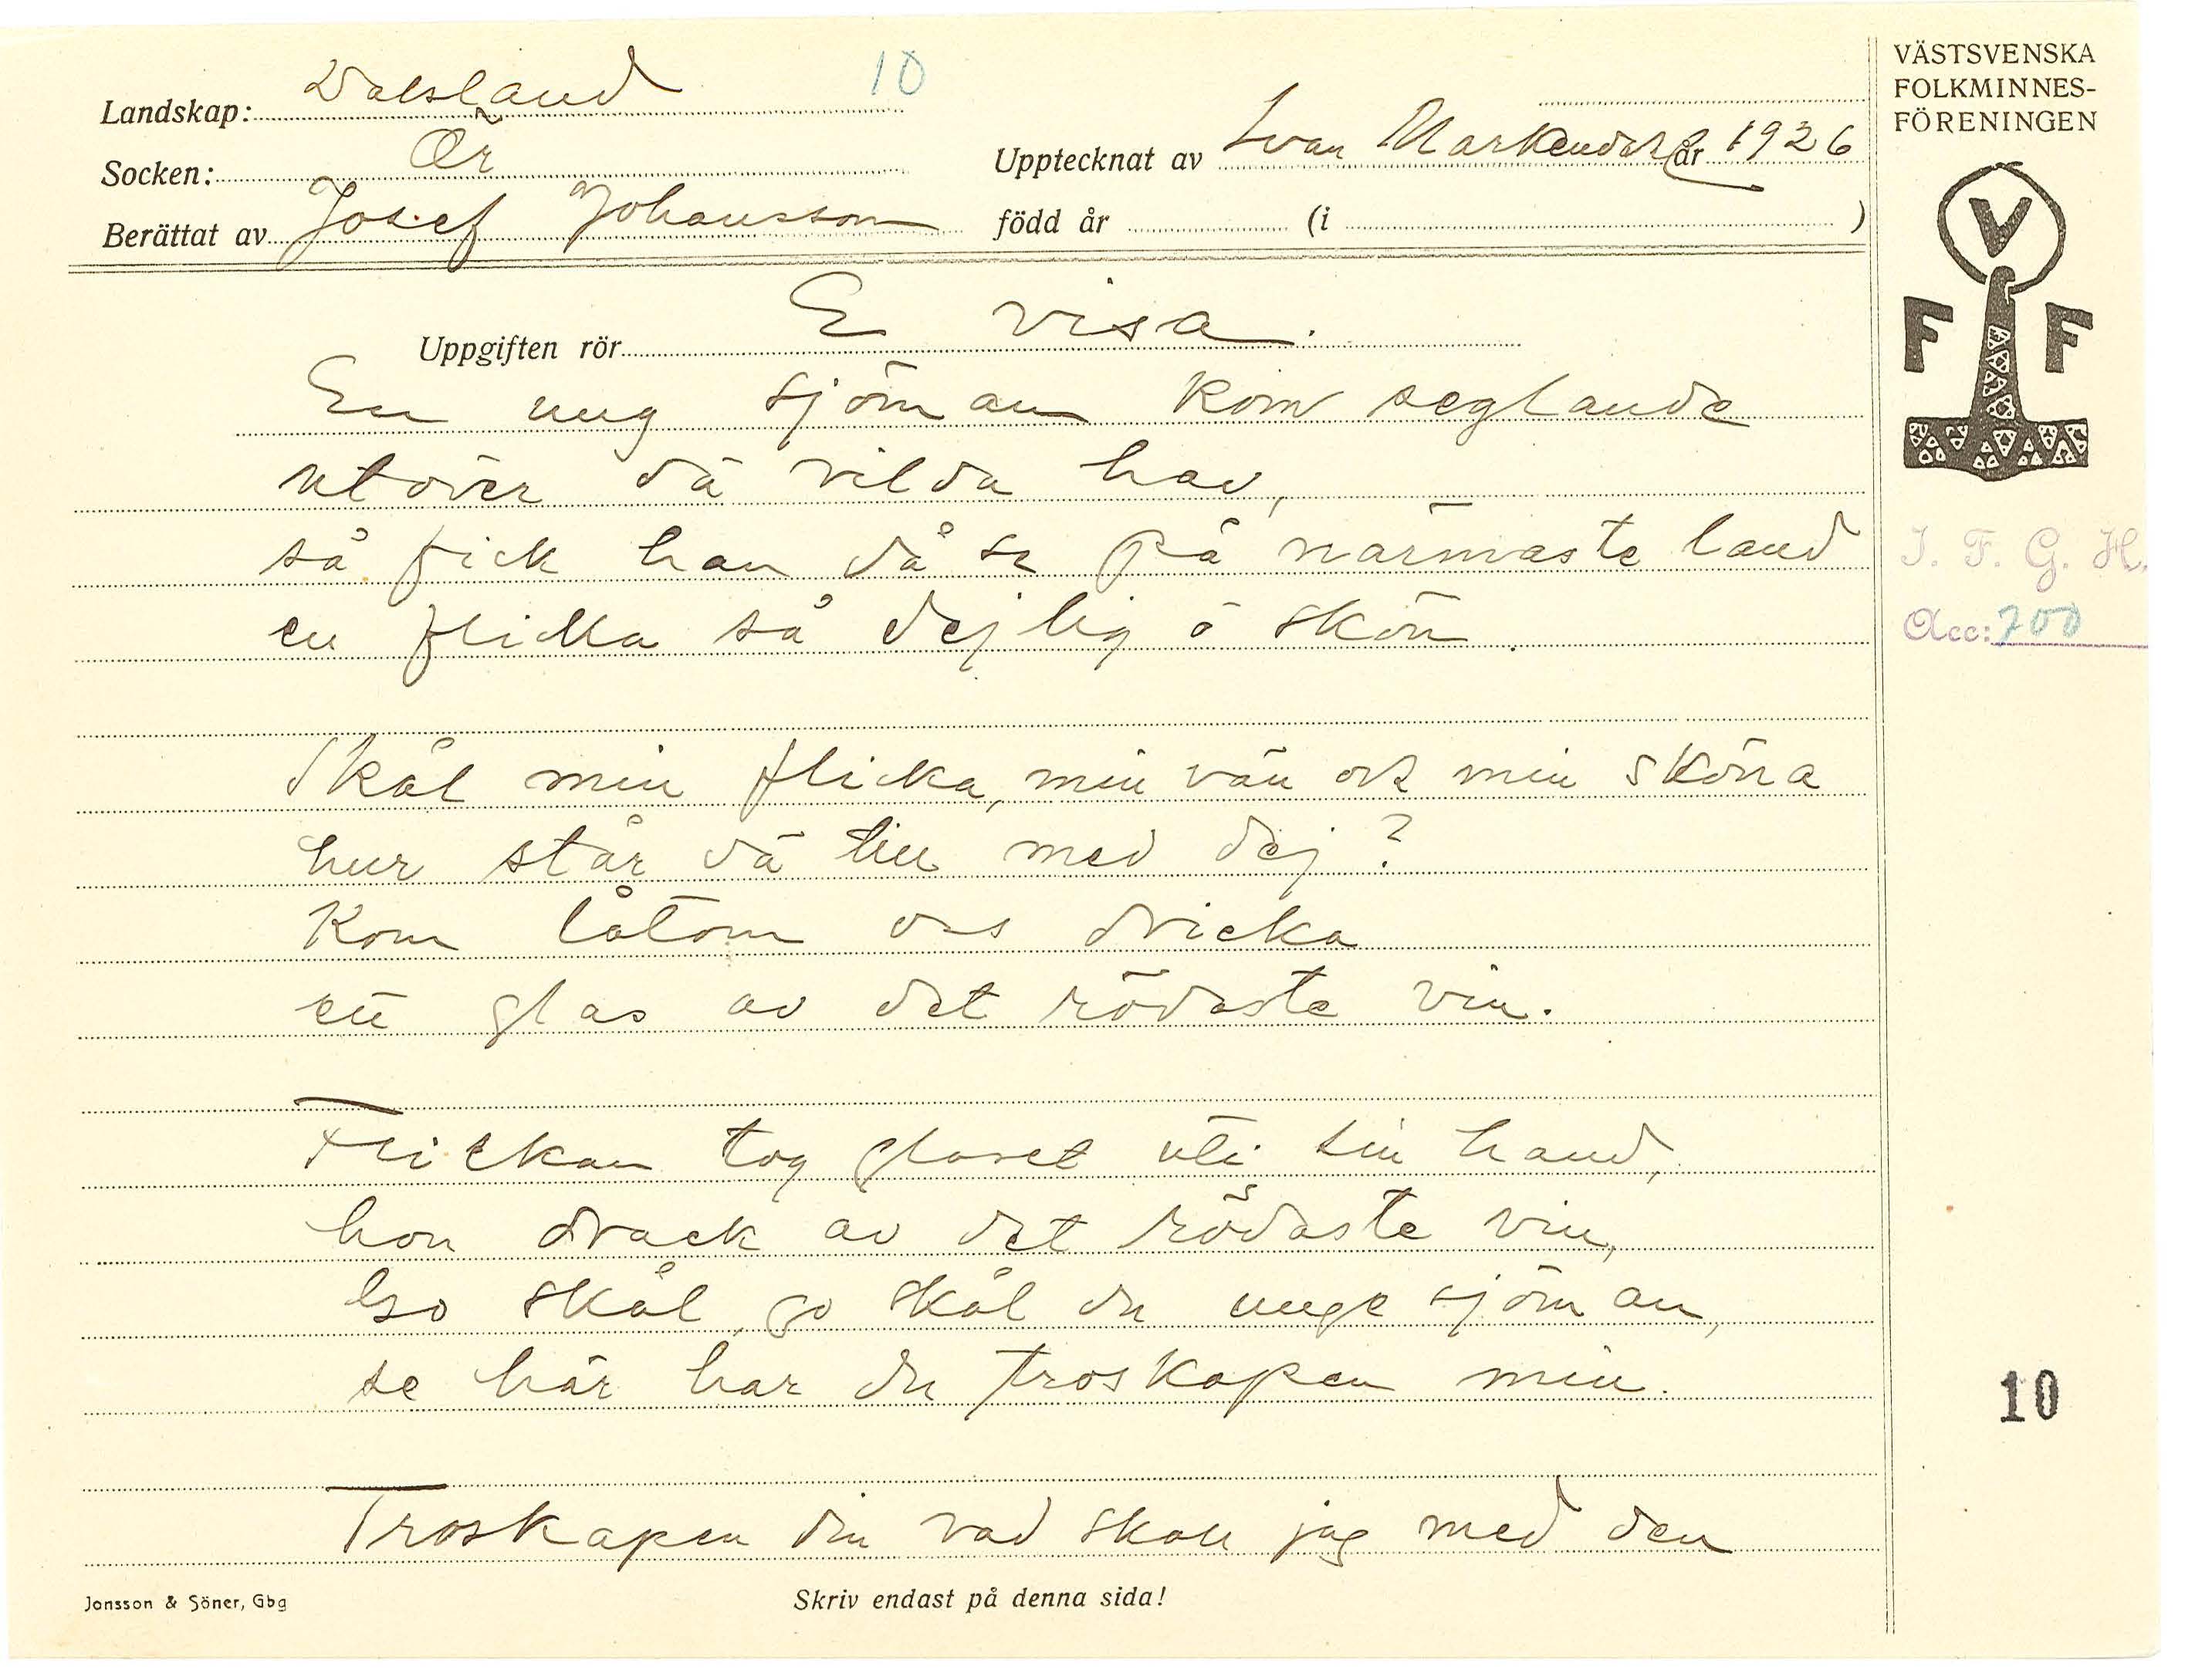 10
Landskap: Dalsland
Socken: Ör
Berättat av Josef Johansson
Upptecknat av Ivan Markendahl år 1926
född år (i )
VÄSTSVENSKA
FOLKMINNES-
FÖRENINGEN
V
F F
Uppgiften rör E visa.
En ung sjöman kom seglande
utöver dä vilda hav,
så fick han då se på närmaste land
en flicka så dejlig ö skön.
Skål min flicka, min vän och min sköna
hur står dä till med dej?
Kom låtom oss dricka
ett glas av det rödaste vin.
Flickan tog glaset uti sin hand,
hon drack av det rödaste vin,
Go skål, go skål du unge sjöman,
se här har du troskapen min.
Troskapen din vad skall jag med den
I. F. G. H.
Acc: 700
10
Jonsson & Söner, Gbg
Skriv endast på denna sida!